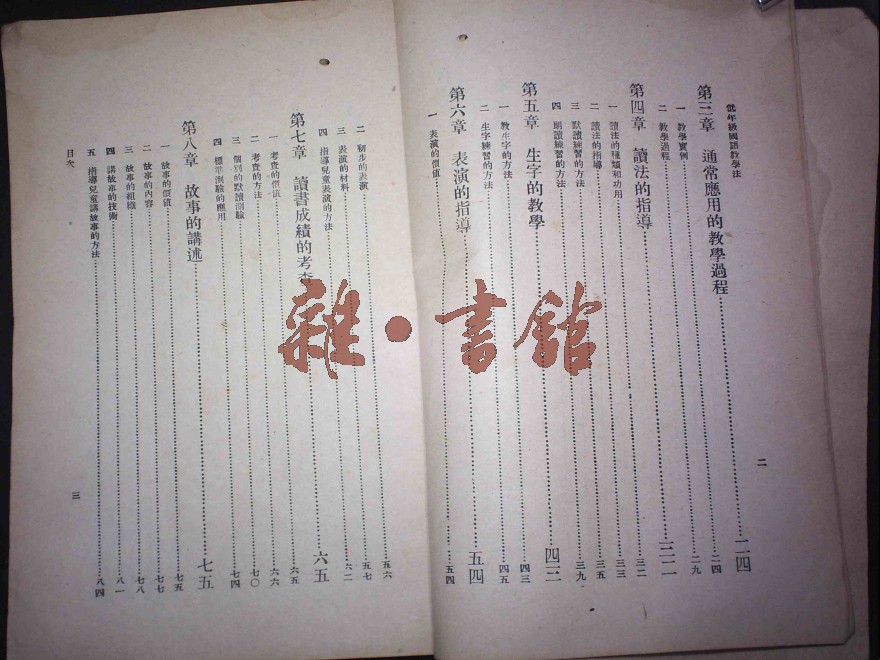 低年級國語教學法
第三章 通常應用的教學過程……二四
一 教學實例……二四
二 教學過程……二九
第四章 讀法的指導……三二
一 讀法的種類和功用……三二
二 讀法的指導……三三
三 默讀練習的方法……三五
四 朗讀練習的方法……三九
第五章 生字的教學……四三
一 教生字的方法……四三
二 生字練習的方法……四五
第六章 表演的指導……五四
一 表演的價值……五四
二
二 初步的表演……五六
三 表演的材料……五七
四 指導兒童表演的方法……六二
第七章 讀書成績的考查……六五
一 考查的價值……六五
二 考查的方法……六六
三 個別的默讀測驗……七〇
四 標準測驗的應用……七四
第八章 故事的講述……七五
一 故事的價值……七五
二 故事的內容……七七
三 故事的組織……七八
四 講故事的技術……八一
五 指導兒童講故事的方法……八四
目次
三
雜·書館